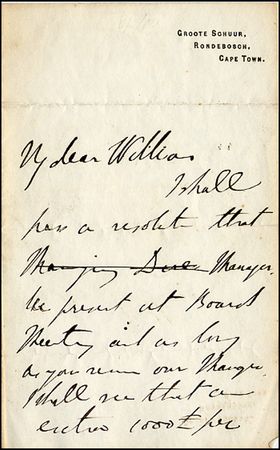 GROOTE SCHUUR,
RONDEBOSCH,
CAPE TOWN.
My dear Williams
I shall
pass a resolutn that
Managing Dire Manager.
be present at Board
Meeting and as long
as you remn our Manager
I shall see that an
extra 1000 £ per